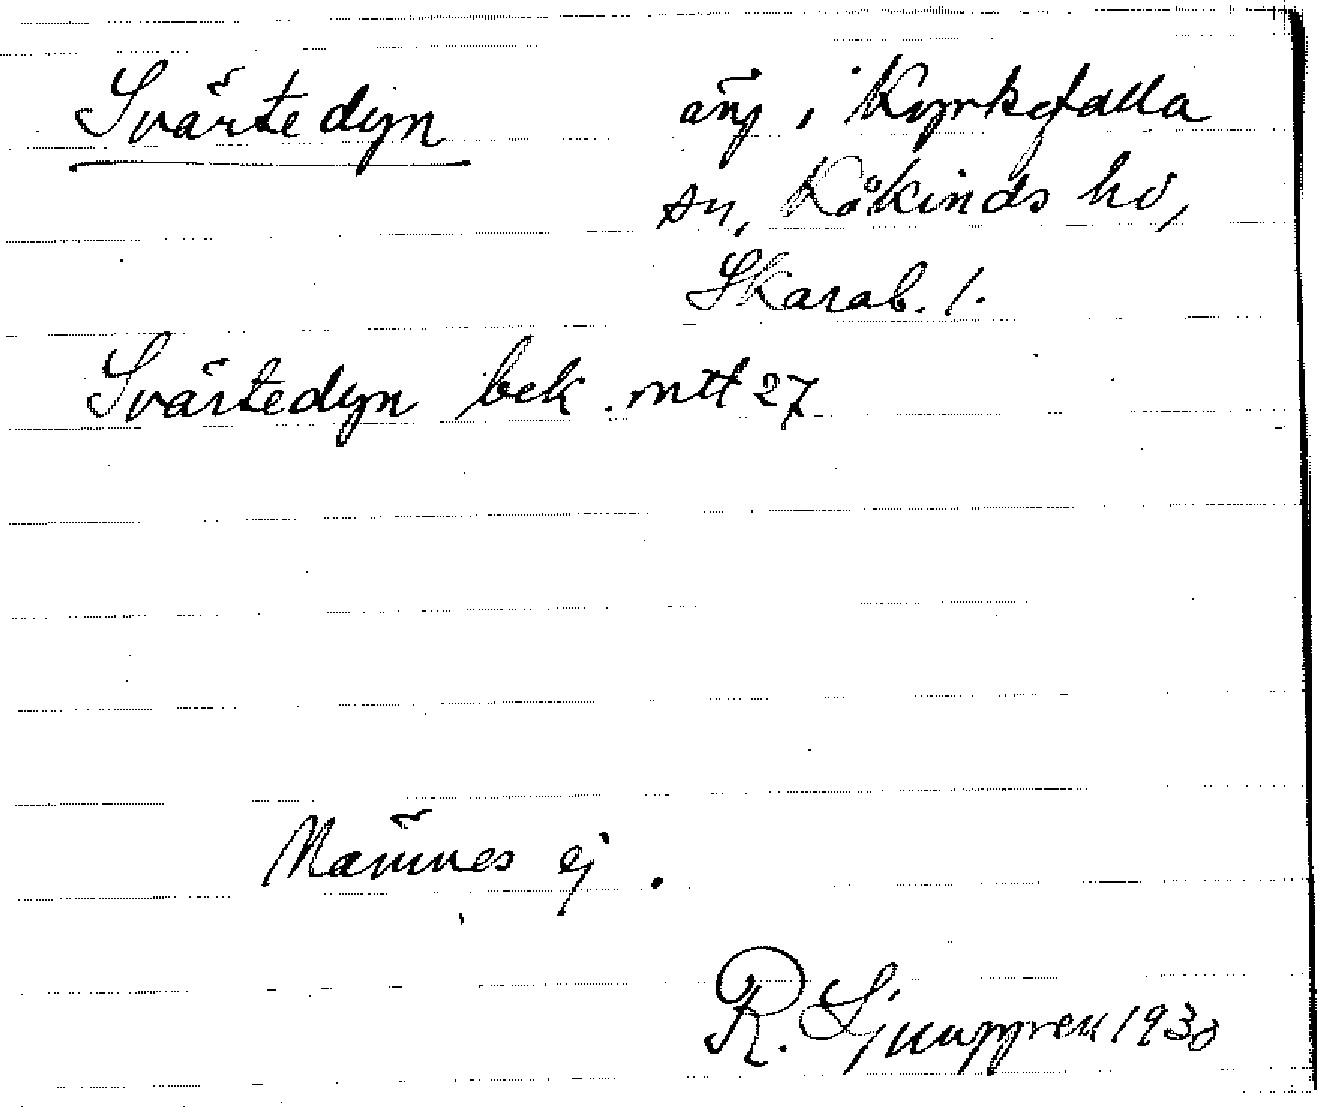 Svärtedyn äng i Kyrkefalla
sn, Kåkinds hd,
Skarab. l.
Svärtedyn bek. mtt 27
Nämnes ej.
R. Ljunggren 1930